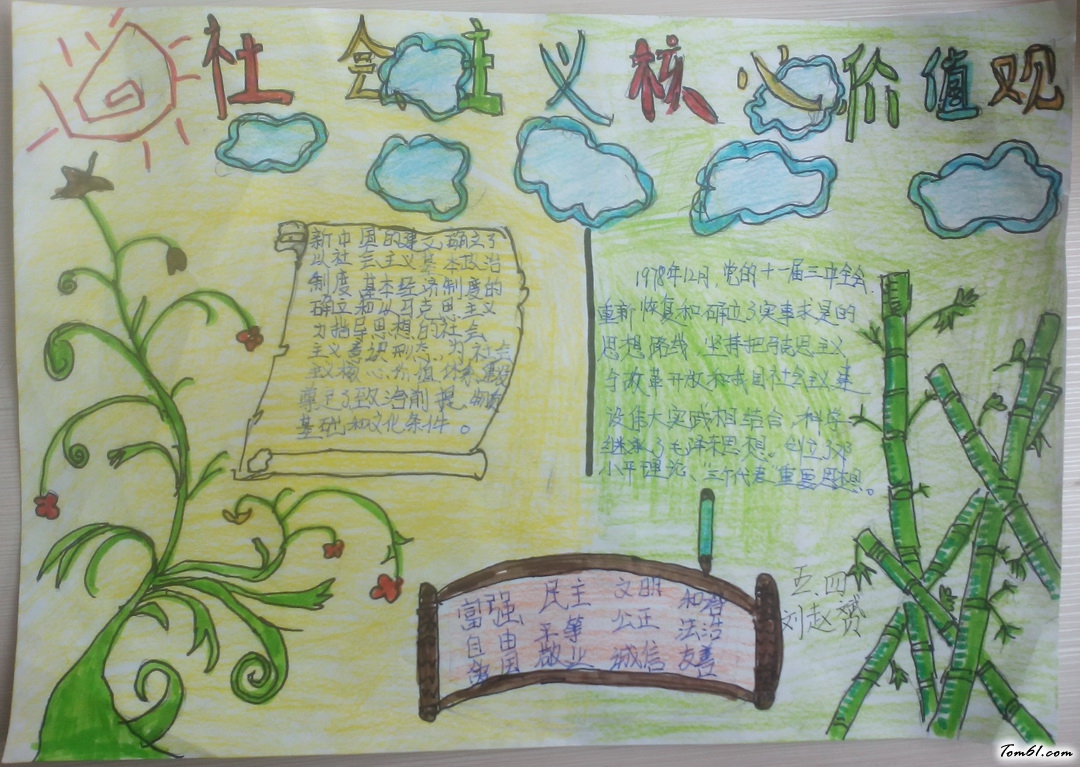 社会主义核心价值观
新中国的建立,确立了
以社会主义基本政治
制度、基本经济制度的
确立和以马克思主义
为指导思想的社会
主义意识形态,为社会
主义核心价值体系建设
奠定了政治前提、物质
基础和文化条件。
1978年12月,党的十一届三中全会,
重新恢复和确立了实事求是的
思想路线,坚持把马克思主义
与改革开放和我国社会主义建
设伟大实践相结合,科学
继承了毛泽东思想,创立了邓
小平理论、三个代表重要思想。
富强 民主 文明 和谐
自由 平等 公正 法治
爱国 敬业 诚信 友善
五.四
刘赵赟
Tom61.com